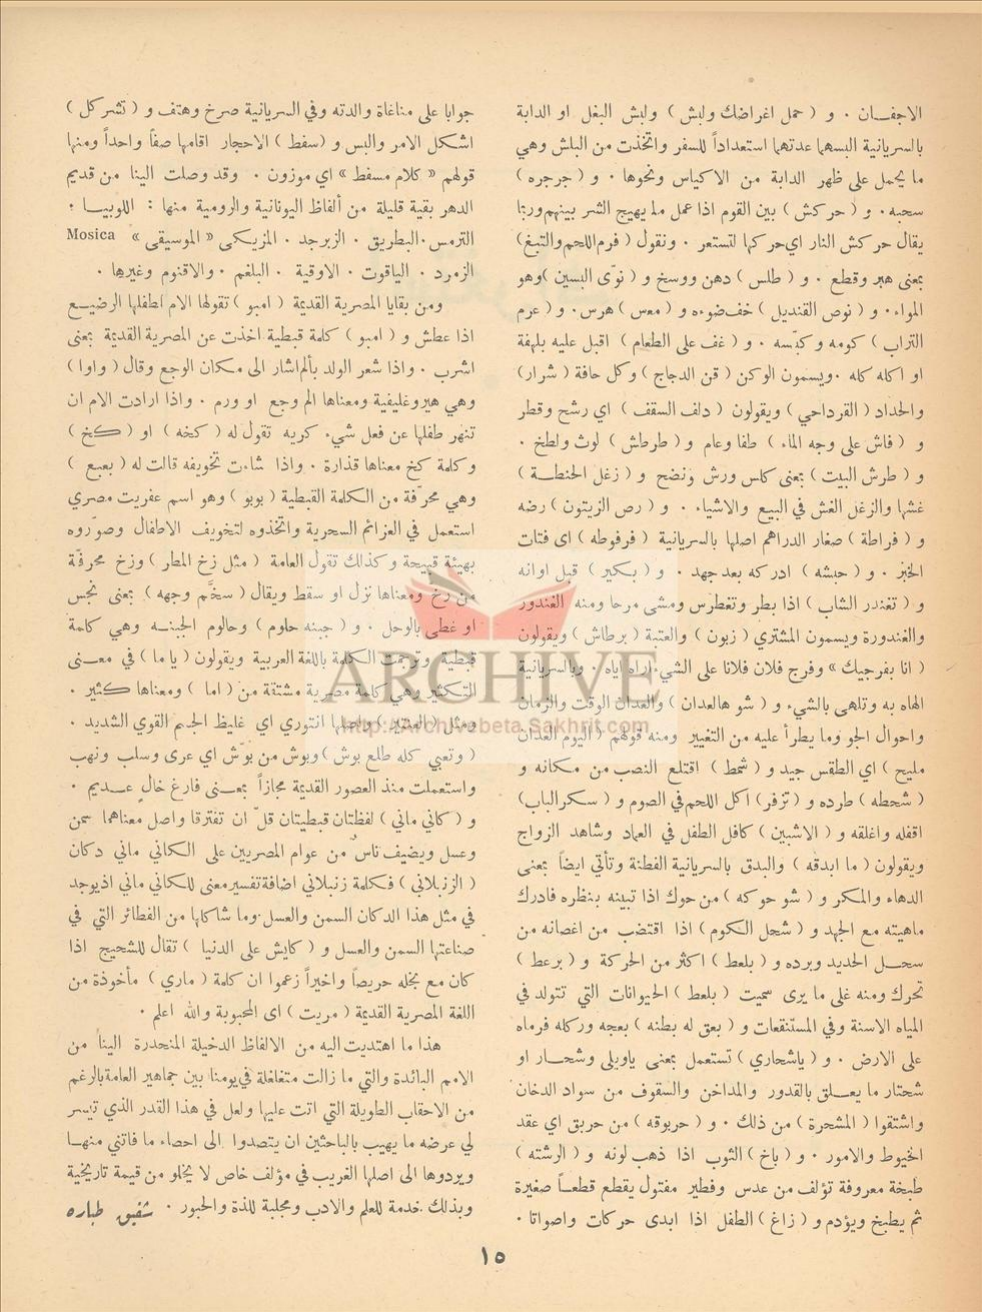 الاجفــان . و ( حمل اغراضك ولبش ) ولبش البغل او الدابة
بالسريانية البسها عدتها استعداداً للسفر واتخذت من البلش وهي
ما يحمل على ظهر الدابة من الاكياس ونحوها . و ( جرجره )
سحبه . و ( حركش ) بين القوم اذا عمل ما يهيج الشر بينهم وربما
يقال حركش النار اي حركها لتستعر . ونقول ( فرم اللحم والتبغ )
بمعنى هبر وقطع . و ( طلس ) دهن ووسخ و ( نوّى البسين ) وهو
المواء . و ( نوص القنديل ) خف ضوءه و ( معس ) هرس . و ( عرم
التراب ) كومه وكبّسه . و ( غف على الطعام ) اقبل عليه بلهفة
او اكله كله . ويسمون الوكن ( قن الدجاج ) وكل حافة ( شرار )
والحداد ( القرداحي ) ويقولون ( دلف السقف ) اي رشح وقطر
و ( فاش على وجه الماء ) طفا وعام و ( طرطش ) لوث ولطخ .
و ( طرش البيت ) بمعنى كلس ورش ونضح و ( زغل الحنطــة )
غشها والزغل الغش في البيع والاشياء . و ( رص الزيتون ) رضه
و ( فراطة ) صغار الدراهم اصلها بالسريانية ( فرفوطه ) اى فتات
الخبز . و ( حبشه ) ادركه بعد جهد . و ( بكير ) قبل اوانه
و ( تغندر الشاب ) اذا بطر وتغطرس ومشى مرحا ومنه الغندور
والغندورة ويسمون المشتري ( زبون ) والعتبة ( برطاش ) ويقولون
( انا بفرجيك » وفرج فلان فلانا على الشيء اراه اياه . وبالسريانية
الهاه به وتلهى بالشيء و ( شو هالعدان ) والعدان الوقت والزمان
واحوال الجو وما يطرأ عليه من التغيير ومنه قولهم ( اليوم العدان
مليح ) اي الطقس جيد و ( شمط ) اقتلع النصب من مكانه و
( شحطه ) طرده و ( تزفر ) اكل اللحم في الصوم و ( سكر الباب )
اقفله واغلقه و ( الاشبين ) كافل الطفل في العماد وشاهد الزواج
ويقولون ( ما ابدقه ) والبدق بالسريانية الفطنة وتأتي ايضاً بمعنى
الدهاء والمكر و ( شو حوكه ) من حوك اذا تبينه بنظره فادرك
ماهيته مع الجهد و ( شحل الكوم ) اذا اقتضب من اغصانه من
سحــل الحديد وبرده و ( بلعط ) اكثر من الحركة و ( برعط )
تحرك ومنه على ما يرى سميت ( بلعط ) الحيوانات التي تتولد في
المياه الاسنة وفي المستنقعات و ( بعق له بطنه ) بعجه وركله فرماه
على الارض . و ( ياشحاري ) تستعمل بمعنى ياويلى وشحــار او
شحتار ما يعــلق بالقدور والمداخن والسقوف من سواد الدخان
واشتقوا ( المشحرة ) من ذلك . و ( حربوقه ) من حربق اي عقد
الخيوط والامور . و ( باخ ) الثوب اذا ذهب لونه و ( الرشته )
طبخة معروفة تؤلف من عدس وفطير مفتول يقطع قطعــاً صغيرة
ثم يطبخ ويؤدم و ( زاغ ) الطفل اذا ابدى حركات واصواتا .
جوابا على مناغاة والدته وفي السريانية صرخ وهتف و ( تشركل )
اشكل الامر والبس و ( سفط ) الاحجار اقامها صفاً واحداً ومنها
قولهم « كلام مسفط » اي موزون . وقد وصلت الينا من قديم
الدهر بقية قليلة من ألفاظ اليونانية والرومية منها : اللوبيــا .
الترمس . البطريق . الزبرجد . المزيكى « الموسيقى » Mosica
الزمرد . الياقوت . الاوقية . البلغم . والاقنوم وغيرها .
ومن بقايا المصرية القديمة ( امبو ) تقولها الام لطفلها الرضيــع
اذا عطش و ( امبو ) كلمة قبطية اخذت عن المصرية القديمة بمعنى
اشرب . واذا شعر الولد بألم اشار الى مكان الوجع وقال ( واوا )
وهي هيروغليفية ومعناها الم وجع او ورم . واذا ارادت الام ان
تنهر طفلها عن فعل شيء كريه تقول له ( كخه ) او ( كخ )
وكلمة كخ معناها قذارة . واذا شاءت تخويفه قالت له ( بعبع )
وهي محرّفة من الكلمة القبطية ( بوبو ) وهو اسم عفريت مصري
استعمل في العزائم السحرية واتخذوه لتخويف الاطفال وصوّروه
بهيئة قبيحة وكذلك تقول العامة ( مثل زخ المطر ) وزخ محرفّة
من رخ ومعناها نزل او سقط ويقال ( سخّم وجهه ) بمعنى نجس
او غطى بالوحل . و ( جبنه حلوم ) وحالوم الجبنــه وهي كلمة
قبطية وترجمت الكلمة باللغة العربية ويقولون ( ياما ) في معــنى
التكثير وهي كلمة مصرية مشتقة من ( اما ) ومعناها كثير .
ومثل ( العنتير ) واصلها انتوري اي غليظ الجسم القوي الشديد .
( وتعبي كله طلع بوش ) وبوش من بوّش اي عرى وسلب ونهب
واستعملت منذ العصور القديمة مجازاً بمعــنى فارغ خالٍ عــديم .
و ( كاني ماني ) لفظتان قبطيتان قلّ ان تفترقا واصل معناهما سمن
وعسل ويضيف ناس من عوام المصريين على الكاني ماني دكان
( الزنبلاني ) فكلمة زنبلاني اضافة تفسير معنى للكاني ماني اذ يوجد
في مثل هذا الدكان السمن والعسل وما شاكلها من الفطائر التي في
صناعتها السمن والعسل و ( كايش على الدنيا ) تقال للشحيح اذا
كان مع بخله حريصاً واخيراً زعموا ان كلمة ( ماري ) مأخوذة من
اللغة المصرية القديمة ( مريت ) اى المحبوبة والله اعلم .
هذا ما اهتديت اليه من الالفاظ الدخيلة المنحدرة الينا من
الامم البائدة والتي ما زالت متغلغلة في يومنا بين جماهير العامة بالرغم
من الاحقاب الطويلة التي اتت عليها ولعل في هذا القدر الذي تيسر
لي عرضه ما يهيب بالباحثين ان يتصدوا الى احصاء ما فاتني منهــا
ويردوها الى اصلها الغريب في مؤلف خاص لا يخلو من قيمة تاريخية
وبذلك خدمة للعلم والادب ومجلبة للذة والحبور . شفيق طباره
١٥
ARCHIVE
http://Archivebeta.Sakhrit.com